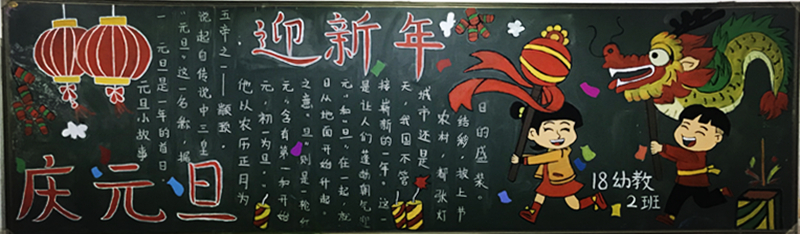 迎新年
庆元旦
元旦小故事
一 元旦是一年的首日
“元旦”这一名称，据
说起自传说中三皇
五帝之一——颛顼，
他以农历正月为
元，初一为旦。“
元”含有第一和开始
之意。旦则是一轮红
日从地面开始升起。“
元”和“旦”在一起，就
是让人们蓬勃朝气
接崭新的一年。这一
天，我国不管
城市还是
农村，都张灯
结彩，披上节
日的盛装。
18幼教
2班